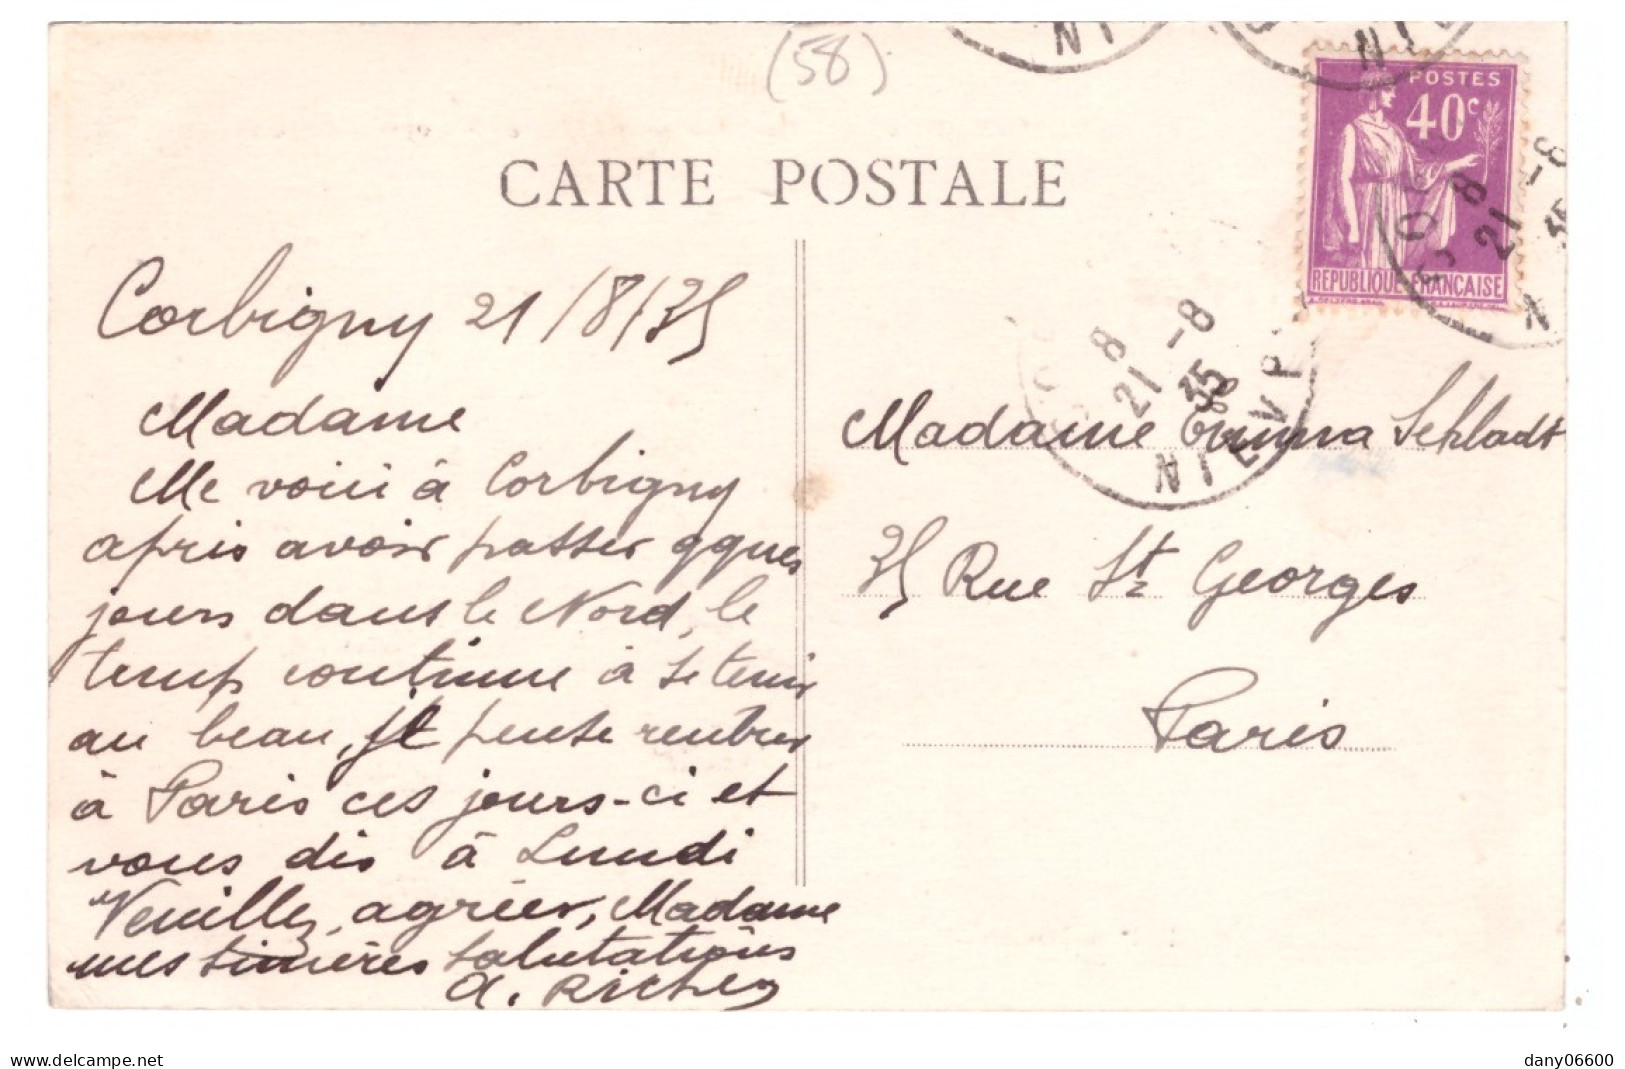 (58)
POSTES
40c
REPUBLIQUE FRANÇAISE
CARTE POSTALE
Corbigny 21/8/35
Madame
Me voici à Corbigny
après avoir passer qques
jours dans le Nord, le
temps continue à se tenir
au beau, je pense rentrer
à Paris ces jours-ci et
vous dis à Lundi
Veuillez, agréer, Madame
mes sincères salutations
A.
8
21 -8
35
NIEVRE
8
21 -8
35
Madame Emma
35 Rue St Georges
Paris
www.delcampe.net
dany06600